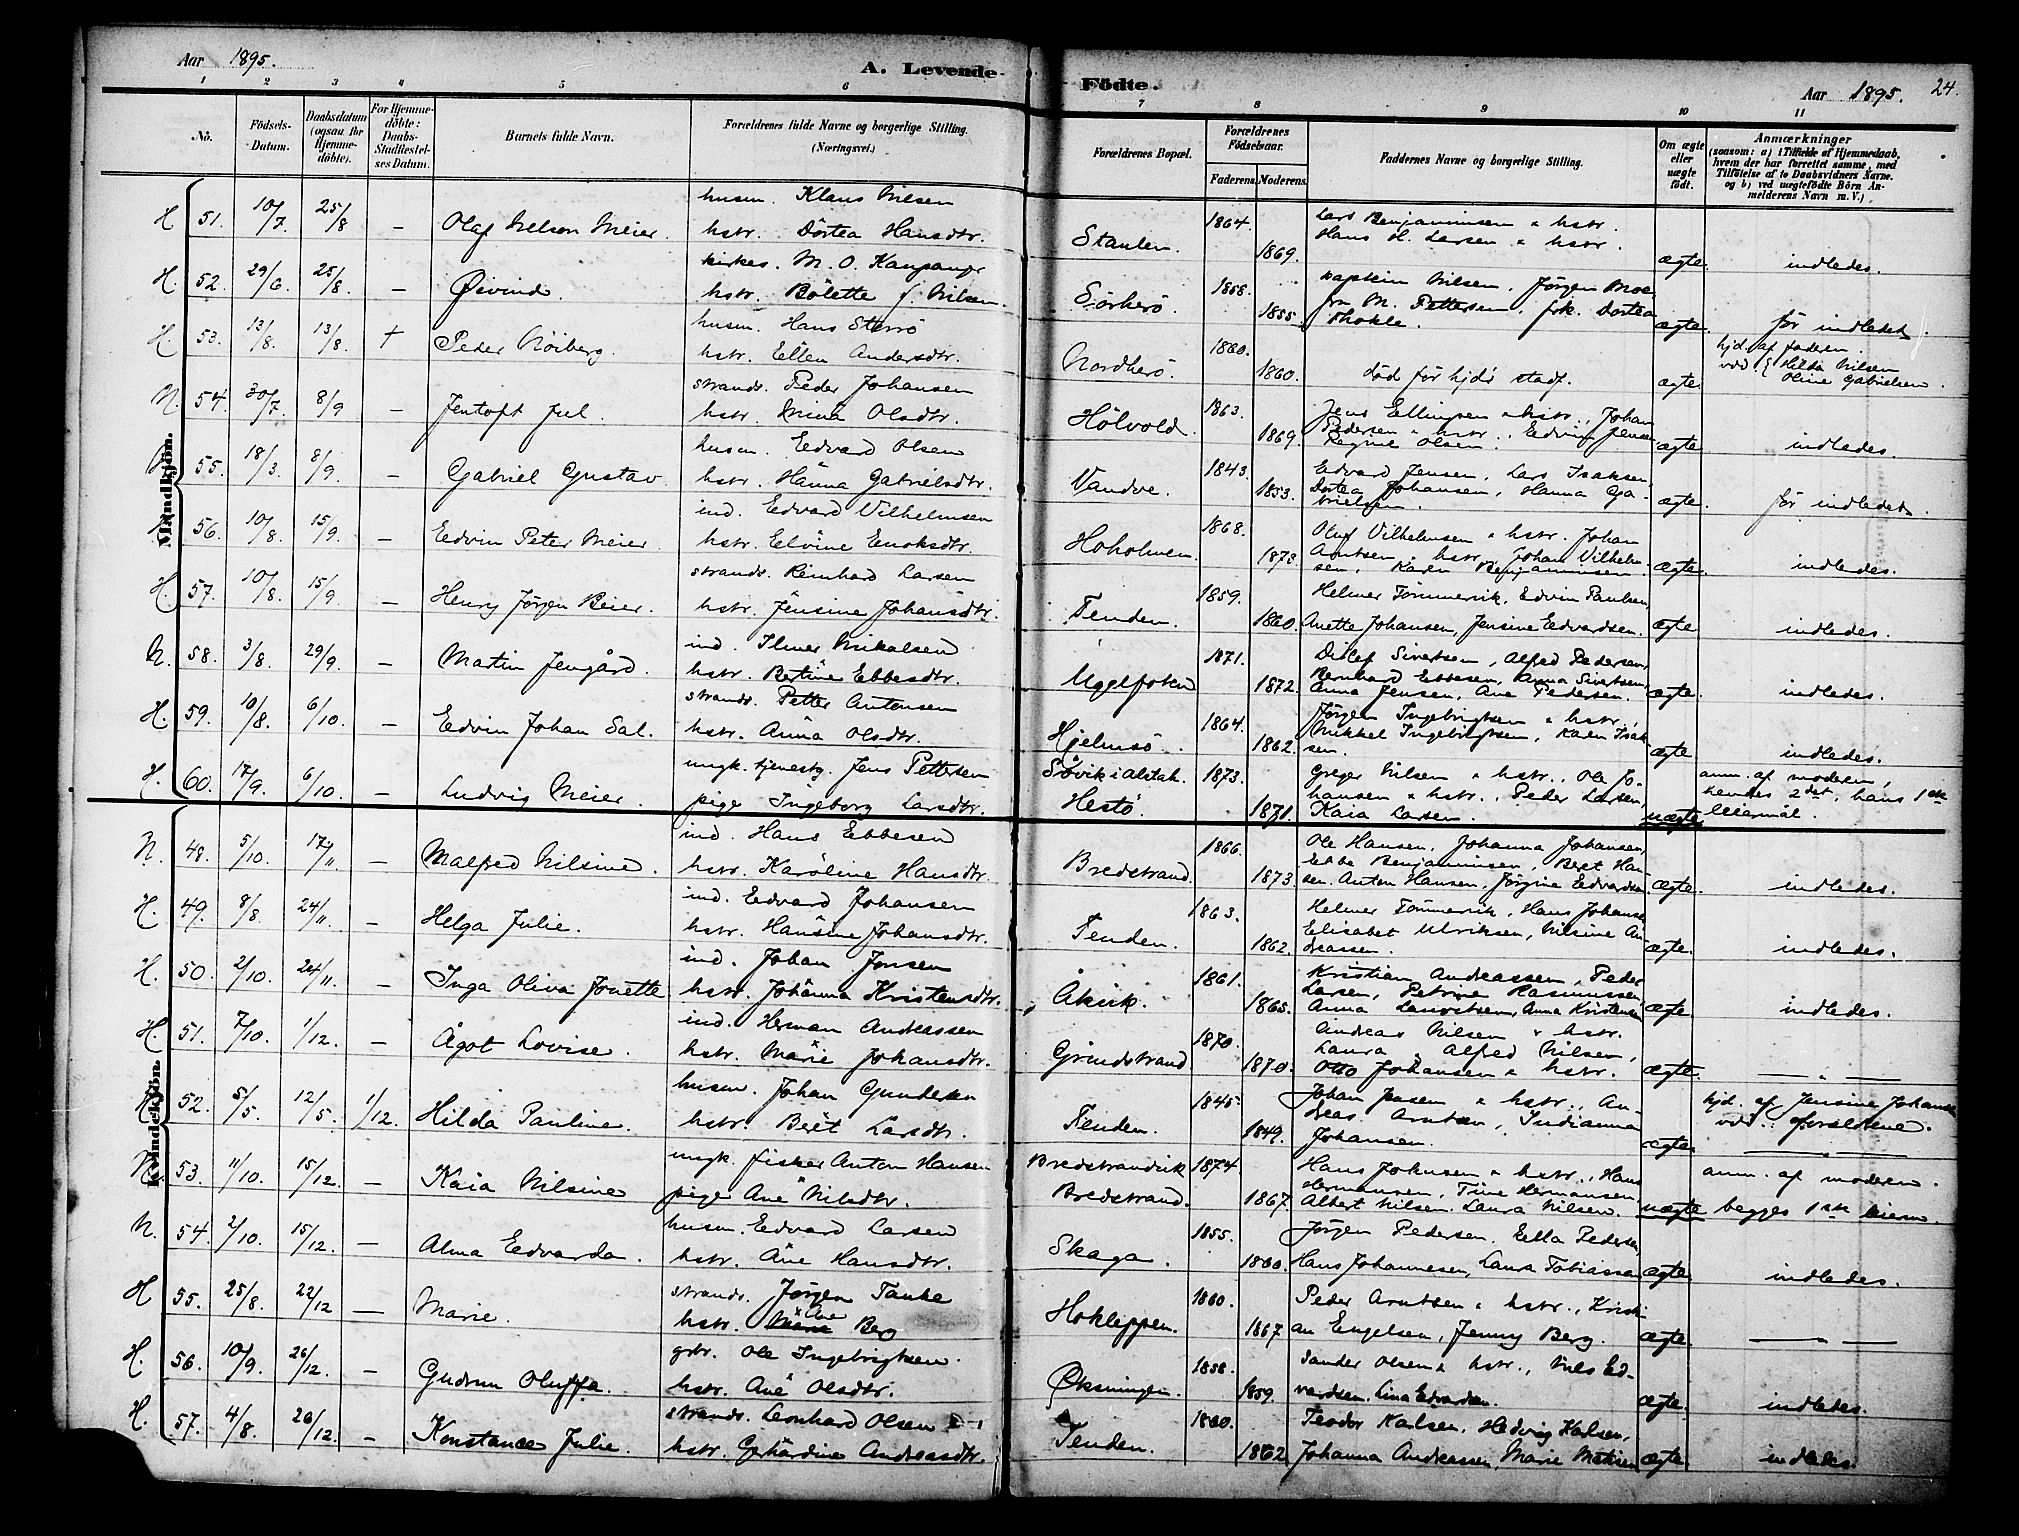 Aar 1895. A. Levende Födte. Aar 1895. 24.
1 2 3 4 5 6 7 8 9 10 11
No. Födsels-Datum. Daabsdatum (ogsaa for Hjemmedöbte). For Hjemmedöbte: Daabs-Stadfæstelses Datum. Barnets fulde Navn. Forældrenes fulde Navne og borgerlige Stilling. (Næringsvei.) Forældrenes Bopæl. Forældrenes Födselsaar. Faderens. Moderens. Faddernes Navne og borgerlige Stilling. Om ægte eller uægte födt. Anmærkninger (saasom: a) i Tilfælde af Hjemmedaab, hvem der har forrettet samme, med Tilföielse af to Daabsvidners Navne. og b) ved uægtefödte Börn Anmelderens Navn m. V.)
Mandkjön.
husm. Klaus Nilsen
H 51. 10/7 25/8 — Olaf Nelson Meier. hstr. Dörtea Hansdtr. Staulen. 1864. 1869. Lars Benjaminsen & hstr. Hans H. Larsen & hstr. ægte. indledes.
kirkes. M. O. Kaupanger
H. 52. 29/6 25/8. — Øivind. hstr. Bölette f. Nilsen. Sörherö. 1858. 1855. kaptein Nilsen, Jörgen Moe, fru M. Pettersen, frk. Dortea Thokle. ægte. för indledet.
husm. Hans Sterrö
H. 53. 13/8. 13/8. + Peder Nöiberg. hstr. Ellen Andersdtr. Nordherö. 1860. 1860. död för hjdb stadf. ægte. hjd. af faderen vid. { Hilda Nilsen Oline Gabrielsen.
strands. Peder Johansen
N. 54. 30/7. 8/9 — Jentoft Jul. hstr. Mina Olsdtr. Hölvold. 1863. 1869. Jens Ellingsen & hstr., Johan Pedersen & hstr., Edvin Jensen Regine Olsen. ægte. indledes.
husm. Edvard Olsen
55. 18/3. 8/9 — Gabriel Gustav. hstr. Hänna Gabrielsdtr. Vandve. 1843. 1853. Edvard Jensen, Lars Isaksen, Dortea Johansen, Hanna Gabrielsen. ægte. för indledet.
ind. Edvard Vilhelmsen
56. 10/8. 15/9. — Edvin Peter Meier. hstr. Elvine Enoksdtr. Hoholmen. 1868. 1873. Oluf Vilhelmsen & hstr. Johan Arntsen & hstr. Johan Vilhelmsen, Karen Benjaminsen. ægte. indledes.
strands. Reinhard Larsen
H. 57. 10/8. 15/9 — Henry Jörgen Beier. hstr. Jensine Johansdtr. Tenden. 1859. 1860. Helmer Tömmervik, Edvin Paulsen, Anette Johansen, Jensine Edvardsen. ægte indledes.
ind. Ilmer Nikolsen
N. 58. 3/8. 29/9. — Martin Jengård. hstr. Bertine Ebbesdtr. Uggelfoten 1871. 1872. Ditlef Sivertsen, Alfred Pedersen, Bernhard Ebbesen, Anna Sivertsen, Anna Jensen, Ane Pedersen. ægte. indledes.
strands. Petter Antonsen
H. 59. 10/8. 6/10. — Edvin Johan Sal. hstr. Anna Olsdtr. Hjelmsö. 1864. 1862. Jörgen Ingebrigtsen & hstr., Mikkel Ingebrigtsen, Karen Isaksen. ægte indledes.
ungk. tjenestg. Jens Pettersen
H. 60. 17/9. 6/10. — Ludvig Meier. pige Ingeborg Larsdtr. Söviki Alstah. Hestö. 1873. 1871. Greger Nilsen & hstr., Ole Johansen & hstr., Peder Larsen, Kaia Larsen. uægte anm. af moderen, hendes 2det, hans 1ste leiermål.
Kvindekjön.
ind. Hans Ebbesen
N. 48. 5/10. 17/11 — Malfred Nilsine. hstr. Karoline Hansdtr. Bredstrand. 1866. 1873. Ole Hansen, Johanna Johansen, Ebbe Benjaminsen, Beret Hansen. Anton Hansen, Jörgine Edvardsen ægte. indledes.
ind. Edvard Johansen
H. 49. 8/8. 24/11. — Helga Julie. hstr. Hansine Johansdtr. Tenden. 1863. 1862. Helmer Tömmervik, Hans Johansen Elisabet Ulriksen, Nilsine Andreassen. ægte. indledes.
ind. Johan Jensen
H. 50. 2/10. 24/11. — Inga Oliva Jonette hstr. Johanna Kristensdtr. Åkvik. 1861. 1865. Kristian Andreassen, Peder Larsen, Petrine Rasmussen, Anna Lauritsen, Anna Kristensen ægte indledes.
ind. Herman Andreassen
H. 51. 7/10. 1/12. — Ågot Lovise. hstr. Marie Johansdtr. Grindstrand. 1870. 1870. Andreas Nilsen & hstr. Laura & Alfred Nilsen, Otto Johansen & hstr. ægte. — „ —
husm. Johan Gundersen
52. 5/5. 12/5. 1/12. Hilda Pauline. hstr. Berét Larsdtr. Tenden. 1845. 1849. Johan Jensen & hstr., Andreas Arntsen, Indianna Johansen. ægte. hjd. af Jensine Johansen vid.: forældrene. — „ —
ungk. fisker Anton Hansen
N. 53. 11/10. 15/12. — Kaia Nilsine pige Ane Nilsdtr. Bredstrandvik Bredstrand. 1874 1867. Hans Johnsen & hstr., Hans Hermansen, Tine Hermansen, Albert Nilsen. Laura Nilsen. uægte anm. af moderen. begges 1ste leierm.
husm. Edvard Larsen
N. 54. 2/10. 15/12. — Alma Edvarda. hstr. Ane Hansdtr. Skaga. 1855. 1860. Jörgen Pedersen, Ella Pedersen, Hans Johannesen, Laura Tobiassen ægte. indledes.
strands. Jörgen Tanke
H 55. 25/8. 22/12 — Marie. hstr. Ane Berg Hokleppen. 1860. 1867. Peder Arntsen & hstr., Kristian Engelsen, Jenny Berg. ægte. — „ —
gbr. Ole Ingebrigtsen.
H. 56. 10/9. 26/12. — Gudrun Oluffa. hstr. Ane Olsdtr. Øksningen. 1858. 1859. Sander Olsen & hstr., Nils Edvardsen. Lina Edvardsen. ægte. indledes.
strands. Leonhard Olsen
H. 57. 4/8. 26/12. — Konstance Julie. hstr. Gerhardine Andreasdtr. Tenden. 1860. 1862. Teodor Karlsen, Hedvig Karlsen, Johanna Andreassen, Marie Matisen ægte. indledes.